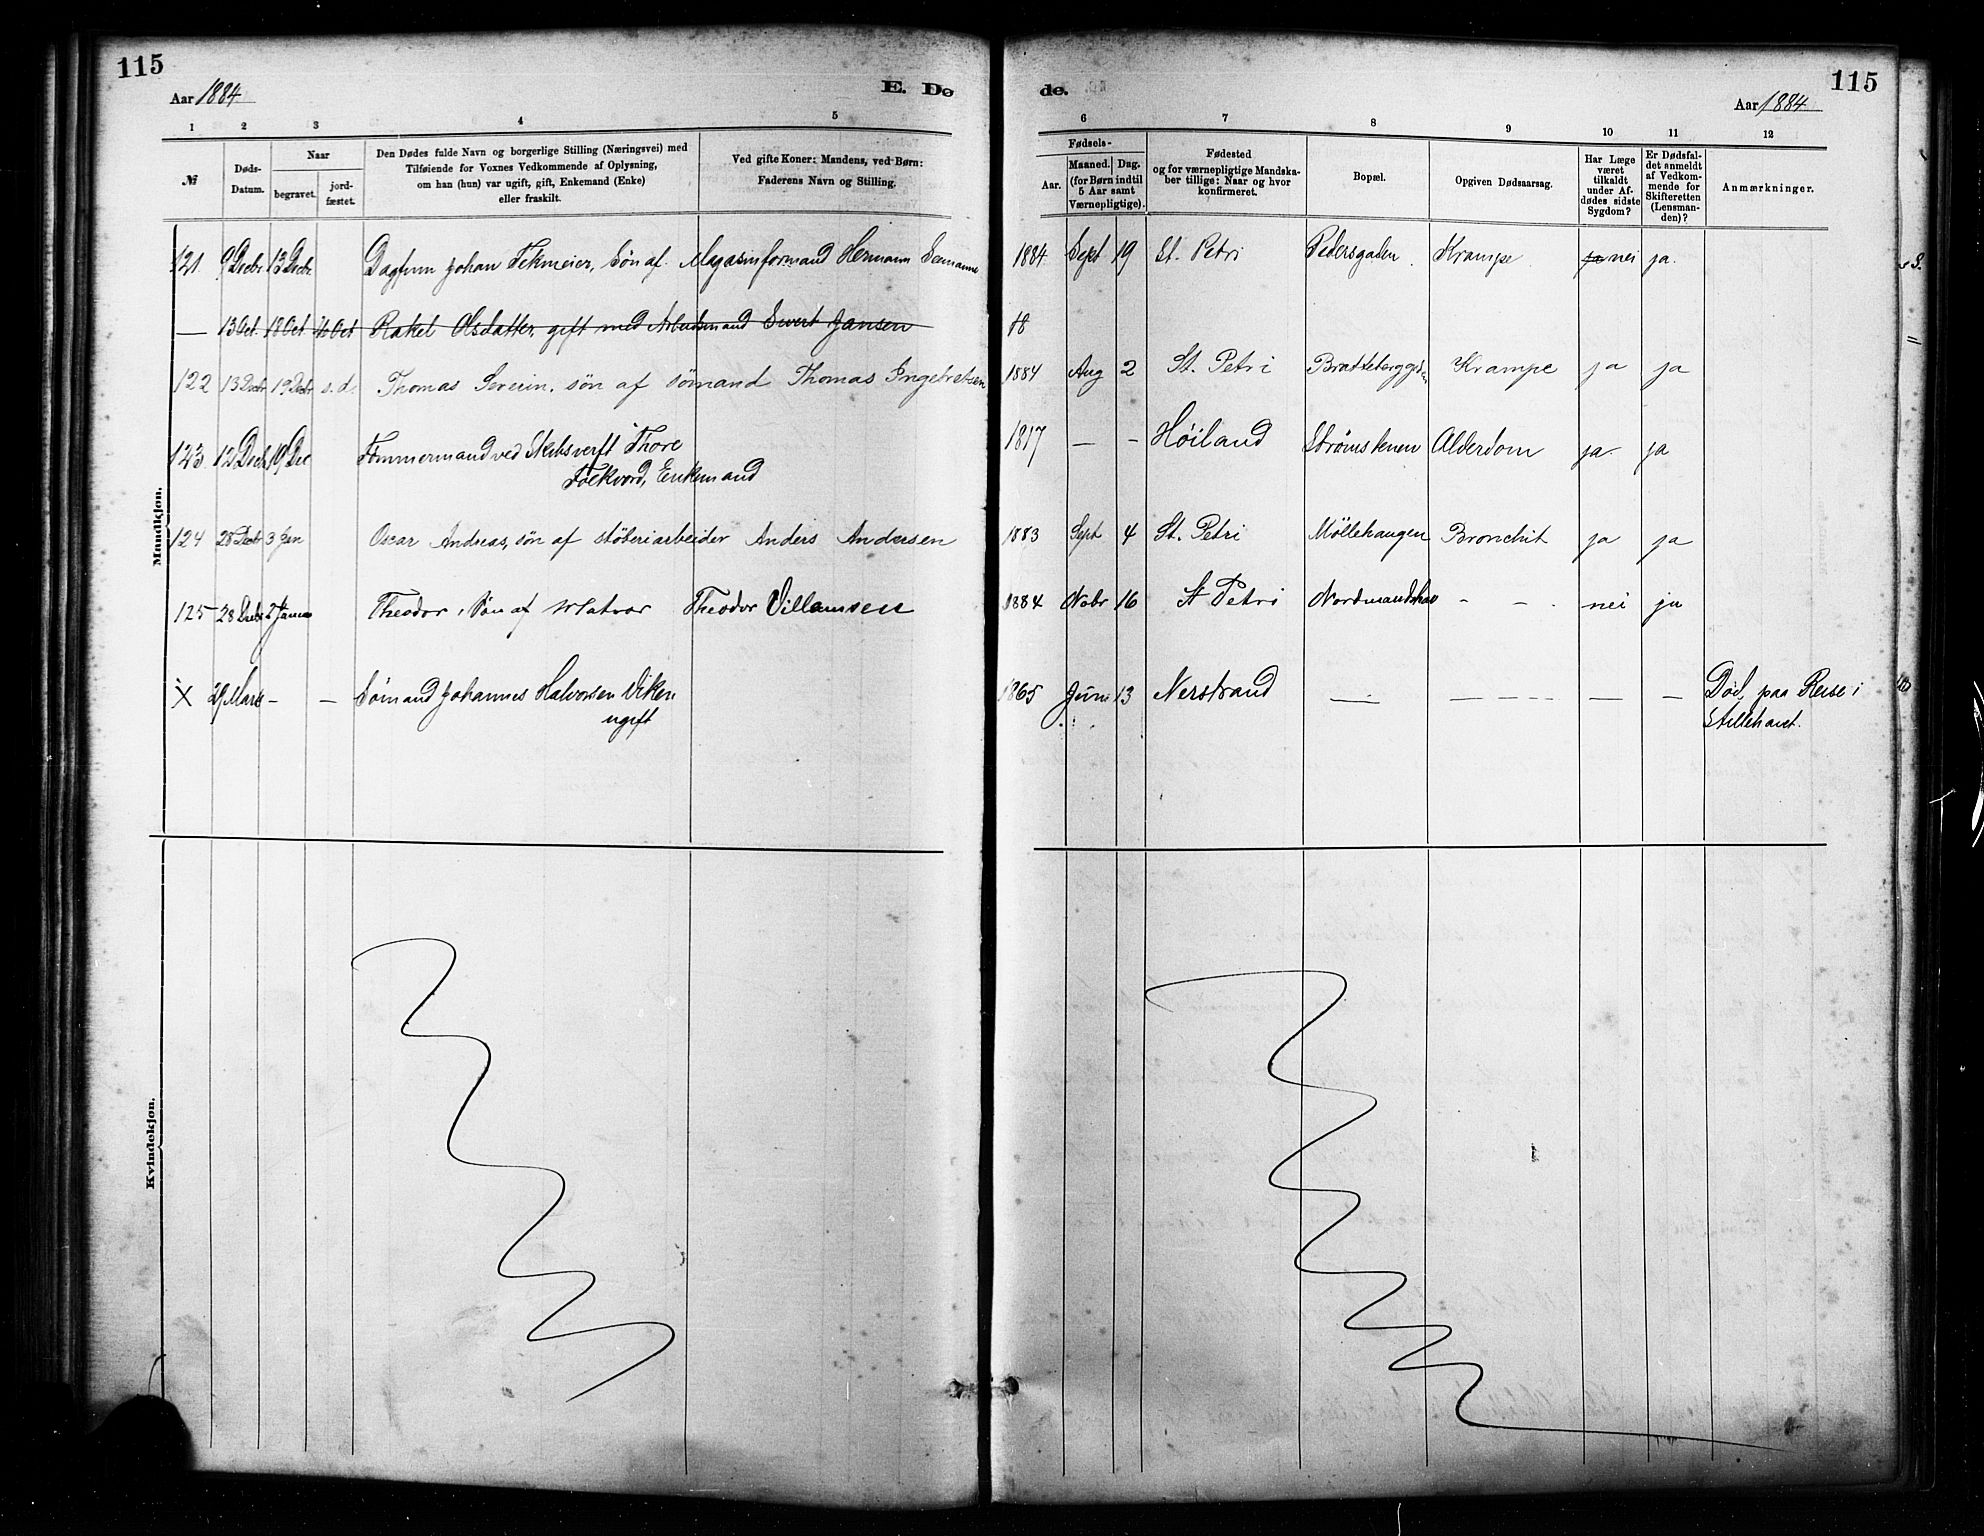 115
Aar 1884
E. Dø
1 2 3 4 5
№
Døds-Datum.
Naar
begravet.
jord-fæstet.
Den Dødes fulde Navn og borgerlige Stilling (Næringsvei) med
Tilføiende for Voxnes Vedkommende af Oplysning,
om han (hun) var ugift, gift, Enkemand (Enke)
eller fraskilt.
Ved gifte Koner: Mandens, ved Børn:
Faderens Navn og Stilling.
Mandkjøn.
121. 9 Decbr. 13 Decbr. Dagfinn Johan Tekmeier, Søn af Magasinformand Hermann
— 13 Oct. 18 Oct Oct Rakel Olsdatter, gift med Arbeidsmand Sivert Jansen
122 13 Decbr 19 Decbr s. d. Thomas Severin, søn af sømand Thomas Ingebretsen
123. 12 Decb 19 Dec Tømmermand ved Skibsverft Thore
Folkvord, Enkemand
124 28 Decbr 3 Jan Oscar Andreas, søn af støberiarbeider Anders Andersen
125 28 Decbr 2 Januar Theodor, Søn af Matros Theodor Villumsen
X 29 Marts — — Sømand Johannes Halvorsen Viken
ugift
Kvindekjøn.
de.
115
Aar 1884
6 7 8 9 10 11 12
Fødsels-
Aar.
Maaned. Dag.
(for Børn indtil
5 Aar samt
Værnepligtige).
Fødested
og for værnepligtige Mandska-
ber tillige: Naar og hvor
konfirmeret.
Bopæl.
Opgiven Dødsaarsag.
Har Læge
været
tilkaldt
under Af-
dødes sidste
Sygdom?
Er Dødsfal-
det anmeldt
af Vedkom-
mende for
Skifteretten
(Lensman-
den)?
Anmærkninger.
1884 Sept 19 St. Petri Pedersgaden Krampe ja nei ja.
18
1884 Aug 2 St. Petri Krampe ja ja
1817 — — Høiland Strømstenen Alderdom ja ja
1883 Sept 4 St. Petri Møllehaugen Bronchit ja ja
1884 Nobr 16 St Petri — — nei ja
1865 Juni 13 Nerstrand — — — — — — Død, paa Reise i
Stillehavet.